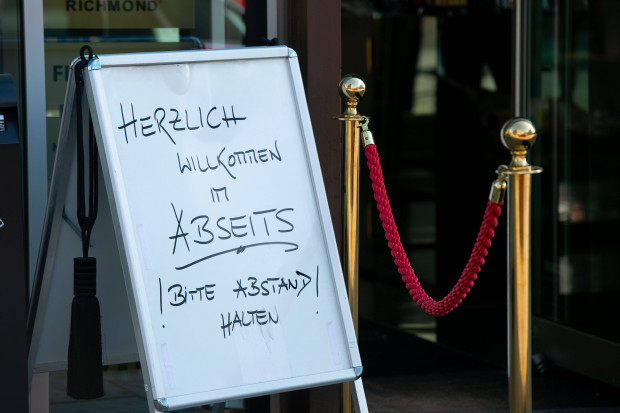 RICHMOND
HERZLICH
WILLKOMMEN
IM
ABSEITS
! BITTE ABSTAND !
HALTEN